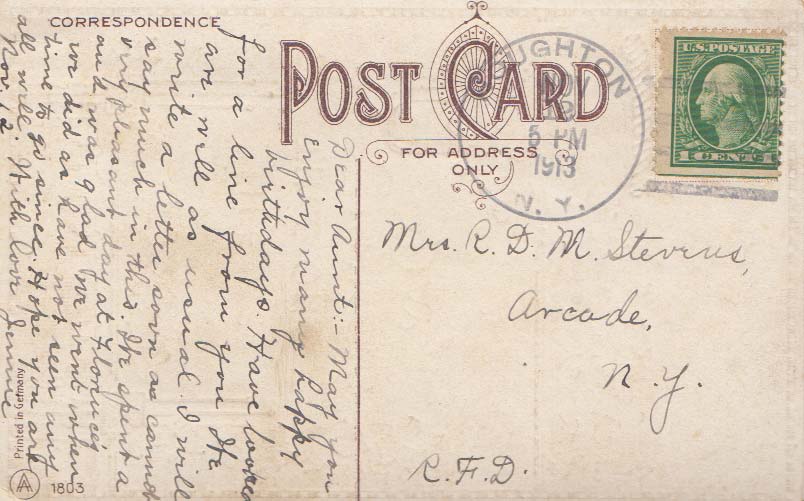 CORRESPONDENCE
POST CARD
FOR ADDRESS
ONLY
UGHTON
NOV
12
5 PM
1913
N. Y.
U.S. POSTAGE
1 CENT 1
Dear Aunt:- May you
enjoy many happy
birthdays. Have looked
for a line from you. We
are well as usual. I will
write a letter soon as cannot
say much in this. We spent a
very pleasant day at Florence's
and was glad we went when
we did as have not seen any
time to go since. Hope you are
all well. With love Jennie
Nov. 12.
Mrs. R. D. M. Stevens,
Arcade,
N. Y.
R. F. D.
Printed in Germany
AA
1803